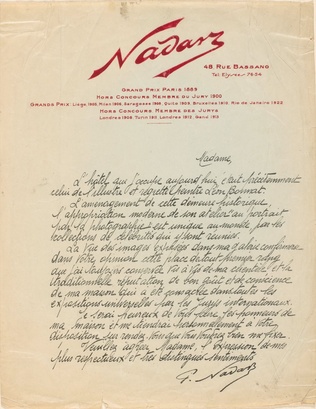 Nadar
48 Rue Bassano
Tel. Elysées 79.54
Grand Prix Paris 1889
Hors Concours Membre du Jury 1900
Grands Prix Liège 1905, Milan 1906, Saragosse 1908, Quito 1909, Bruxelles 1910, Rio de Janeiro 1922
Hors Concours Membre des Jurys
Londres 1908, Turin 1911, Londres 1912, Gand 1913
Madame,
L'hôtel que j'occupe aujourd'hui était précédemment
celui de l'illustre et regretté Maître Léon Bonnat.
L'aménagement de cette demeure historique,
l'appropriation moderne de son atelier au portrait
par la photographie est unique au monde par les
collections de célébrités qui y sont réunies.
La vue des images exposées dans ma galerie confirmera
dans votre opinion cette place de tout premier rang
que j'ai toujours conservée vis à vis de ma clientèle et la
traditionnelle réputation de bon goût et de conscience
de ma maison qui a été consacrée dans toutes les
expositions universelles par les jurys internationaux.
Je serai heureux de vous faire les honneurs de
ma maison et me tiendrai personnellement à votre
disposition sur rendez-vous que vous voudrez bien me fixer.
Veuillez agréer, Madame, l'expression de mes
plus respectueux et très distingués sentiments
P. Nadar